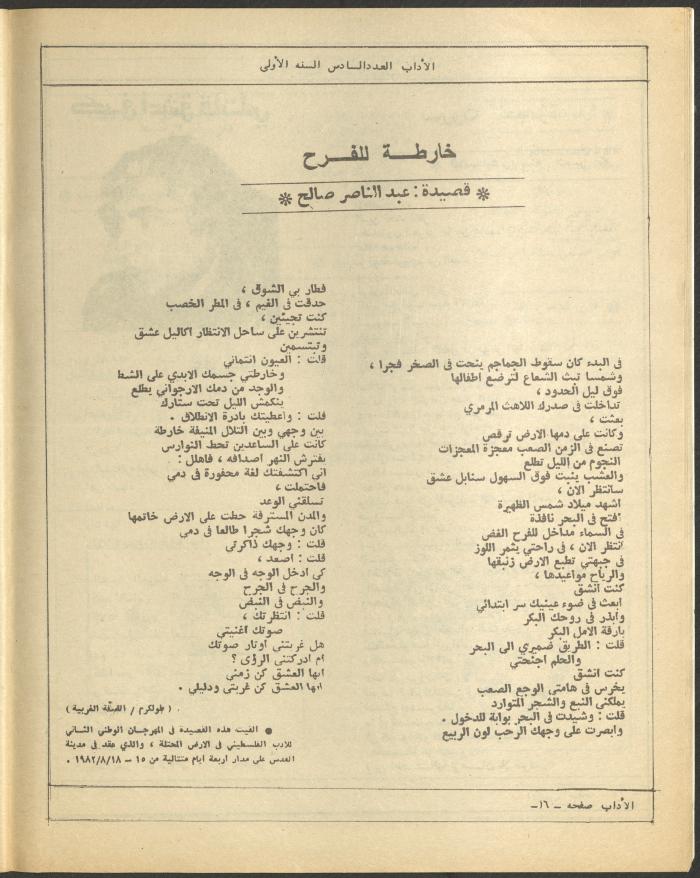 الآداب العدد السادس السنه الأولى
خارطـــة للفـــرح
* قصيدة : عبد الناصر صالح *
فى البدء كان سقوط الجماجم ينحت فى الصخر فجرا ،
وشمسا تبث الشعاع لترضع اطفالها
فوق ليل الحدود ،
تداخلت في صدرك اللاهث المرمري
بعثت ،
وكانت على دمها الارض ترقص
تصنع في الزمن الصعب معجزة المعجزات
النجوم من الليل تطلع
والعشب ينبت فوق السهول سنابل عشق
سانتظر الآن ،
اشهد ميلاد شمس الظهيرة
أفتح فى البحر نافذة
فى السماء مداخل للفرح الغض
انتظر الآن ، فى راحتي يثمر اللوز
فى جبهتي تطبع الارض زنبقها
والرياح مواعيدها ،
كنت انشق
ابعث فى ضوء عينيك سر ابتدائي
وابذر فى روحك البكر
بارقة الامل البكر
قلت : الطريق ضميري الى البحر
والحلم اجنحتي
كنت انشق
يخرس في هامتي الوجع الصعب
يملكني النبع والشجر المتوارد
قلت : وشيدت فى البحر بوابة للدخول .
وابصرت على وجهك الرحب لون الربيع
فطار بي الشوق ،
حدقت فى الغيم ، فى المطر الخصب
كنت تجيئين ،
تنتشرين على ساحل الانتظار اكاليل عشق
وتبتسمين
قلت : العيون انتمائي
وخارطتي جسمك الابدي على الشط
والوجد من دمك الارجواني يطلع
ينكمش الليل تحت ستارك
قلت : واعطيتك بادرة الانطلاق .
بين وجهي وبين التلال المنيفة خارطة
كانت على الساعدين تحط النوارس
يفترش النهر اصدافه ، فاهلل :
اني اكتشفتك لغة محفورة فى دمي
فاحتملت ،
تسلقني الوعد
والمدن المسترقة حطت على الارض خاتمها
كان وجهك شجرا طالعا فى دمي
قلت : وجهك ذاكرتي
قلت : اصعد ،
كى ادخل الوجه فى الوجه
والجرح فى الجرح
والنبض فى النبض
قلت : انتظرتك ،
صوتك اغنيتي
هل غربتنى اوتار صوتك
ام ادركتنى الرؤى ؟
ايها العشق كن زمني
ايها العشق كن غربتي ودليلي .
( طولكرم / الضفة الغربية )
● القيت هذه القصيدة فى المهرجان الوطني الثـاني
للادب الفلسطيني فى الارض المحتلة ، والذي عقد فى مدينة
القدس على مدار اربعة ايام متتالية من ١٥ – ١٩٨٢/٨/١٨ .
الآداب صفحه – ١٦-